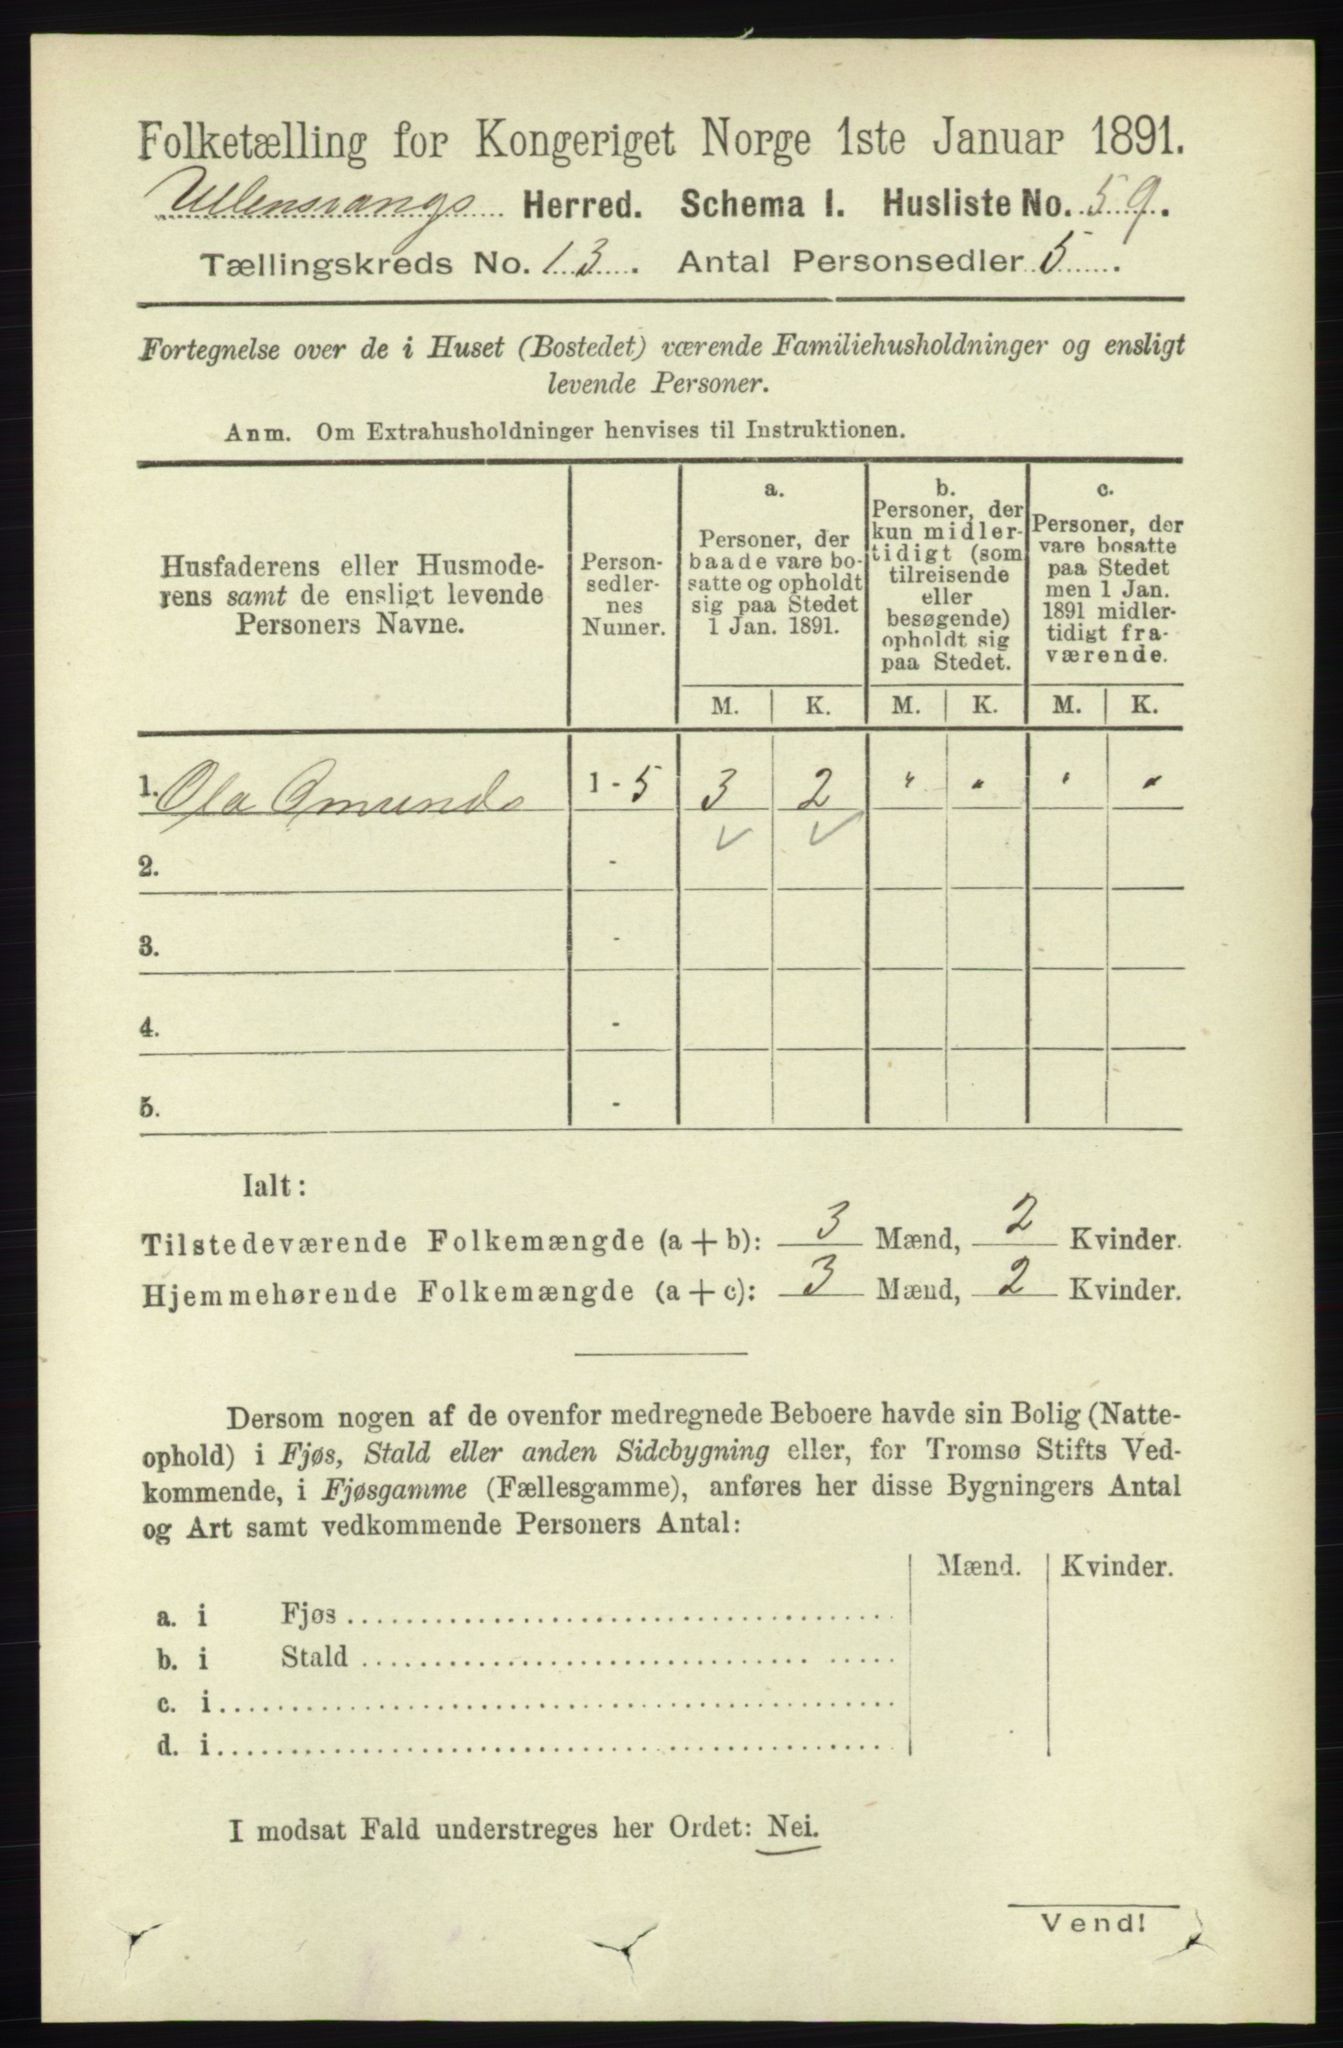 Folketælling for Kongeriget Norge 1ste Januar 1891.
Ullensvangs Herred. Schema I. Husliste No. 59.
Tællingskreds No. 13. Antal Personsedler 5.
Fortegnelse over de i Huset (Bostedet) værende Familiehusholdninger og ensligt
levende Personer.
Anm. Om Extrahusholdninger henvises til Instruktionen.
Husfaderens eller Husmode-
rens samt de ensligt levende
Personers Navne.
Person-
sedler-
nes
Numer.
a.
Personer, der
baade vare bo-
satte og opholdt
sig paa Stedet
1 Jan. 1891.
b.
Personer, der
kun midler-
tidigt (som
tilreisende
eller
besøgende)
opholdt sig
paa Stedet.
c.
Personer, der
vare bosatte
paa Stedet
men 1 Jan.
1891 midler-
tidigt fra-
værende.
M. K. M. K. M. K.
1. Ola Omunds 1 - 5 3 2 " " " "
2. -
3. -
4. -
5. -
Ialt:
Tilstedeværende Folkemængde (a + b): 3 Mænd, 2 Kvinder.
Hjemmehørende Folkemængde (a + c): 3 Mænd, 2 Kvinder.
Dersom nogen af de ovenfor medregnede Beboere havde sin Bolig (Natte-
ophold) i Fjøs, Stald eller anden Sidebygning eller, for Tromsø Stifts Ved-
kommende, i Fjøsgamme (Fællesgamme), anføres her disse Bygningers Antal
og Art samt vedkommende Personers Antal:
Mænd. Kvinder.
a. i Fjøs
b. i Stald
c. i
d. i
I modsat Fald understreges her Ordet: Nei.
Vend!